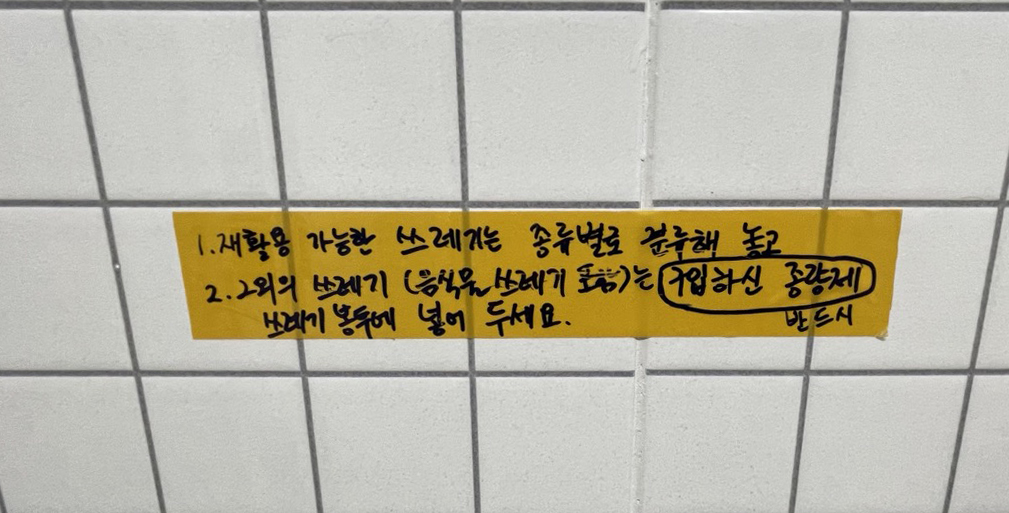 1. 재활용 가능한 쓰레기는 종류별로 분류해 놓고
2. 그외의 쓰레기 (음식물 쓰레기 포함)는 구입하신 종량제
쓰레기 봉투에 넣어 두세요. 반드시